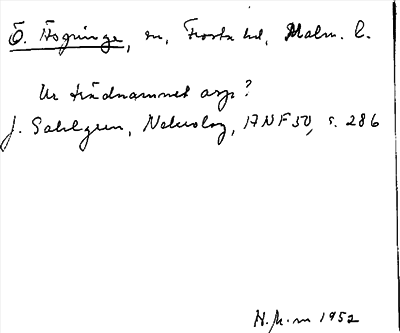 Ö. Asgninge, sn, Frosta hd, Malm. l.
Ur trädnamnet asp?
J. Sahlgren, Nekrolog, ANF 50, s. 286
H.h.-n 1952